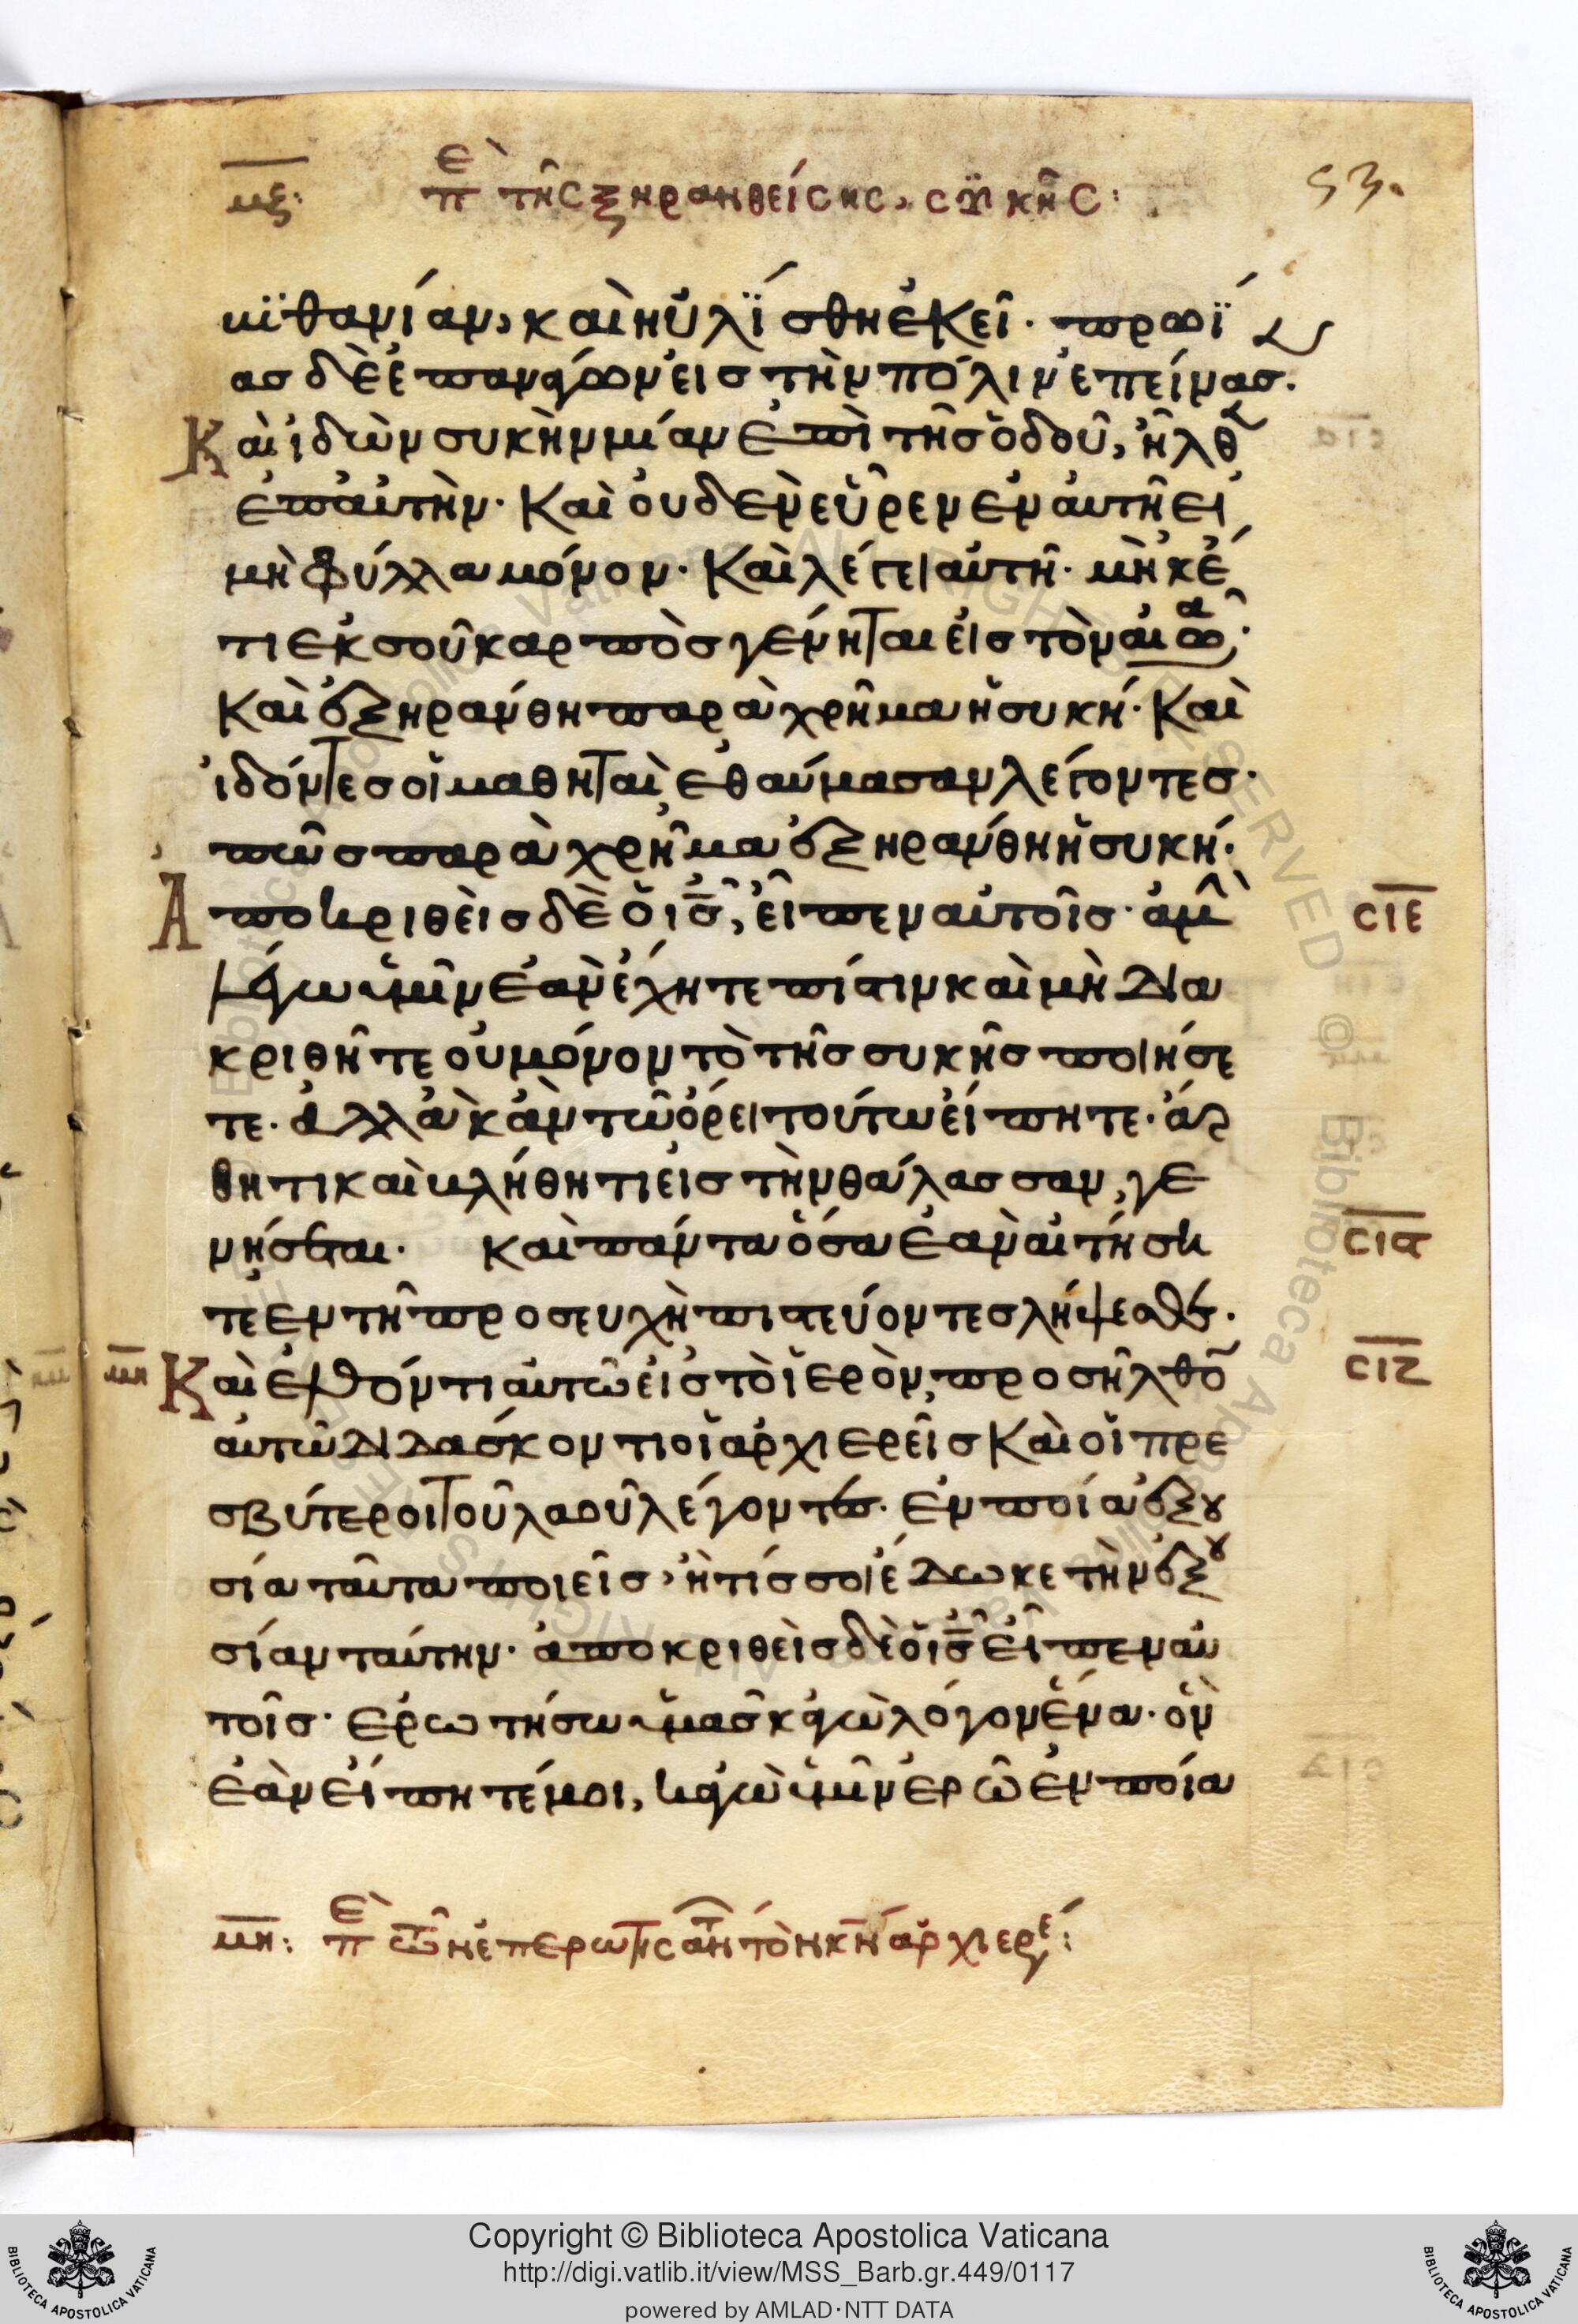 μζ: ἐπὶ τῆς ξηρανθείσης, συκῆς: 53.
βηθανίαν, καὶ ηὐλίσθη ἐκεῖ. πρωΐ
ας δὲ ἐπανάγων εἰς τὴν πόλιν ἐπείνασ.
Καὶ ἰδὼν συκὴν μίαν ἐπὶ τῆς ὁδοῦ, ἦλθ
ἐπ αὐτὴν. Καὶ οὐδὲν εὗρεν ἐν αὐτῆ εἰ
μὴ φύλλα μόνον. Καὶ λέγει αὐτῆ. μὴκέ
τι ἐκ σοῦ καρπὸς γένηται εἰς τὸν αἰῶνα·
Καὶ ἐξηράνθη παραχρῆμα ἡ συκή. Καὶ
ἰδόντες οἱ μαθηταὶ ἐθαύμασαν λέγοντες.
πῶς παραχρῆμα ἐξηράνθη ἡ συκή.
Ἀποκριθεὶς δὲ ὁ ις, εἶπεν αὐτοῖς. ἀμὴν
λέγω ὑμῖν ἐὰν ἔχητε πίστιν καὶ μὴ δια
κριθῆτε οὐ μόνον τὸ τῆς συκῆς ποιήσε
τε. ἀλλὰ κἀν τῶ ὄρει τούτω εἴπητε. ἄρ
θητι καὶ βλήθητι εἰς τὴν θάλασσαν, γε
νήσεται. καὶ πάντα ὅσα ἐὰν αἰτήση
τε ἐν τῆ προσευχὴ πιστεύοντες λήψεσθε.
μη Καὶ ἐλθόντι αὐτῶ εἰς τὸ ἱερὸν, προσῆλθον
αὐτῶ διδάσκοντι οἱ ἀρχιερεῖς Καὶ οἱ πρε
σβύτεροι τοῦ λαοῦ λέγοντες. ἐν ποία ἐξου
σία ταῦτα ποιεῖς, ἢ τίς σοι ἔδωκε τὴν ἐξου
σίαν ταύτην. ἀποκριθεὶς δὲ ὁ ις εἶπεν αὐ
τοῖς. ἐρωτήσω ὑμᾶς κἀγὼ λόγον ἕνα. ὃν
ἐὰν εἴπητέ μοι, κἀγὼ ὑμῖν ἐρῶ ἐν ποία
μη: ἐπὶ τῶν ἐπερωτησάντων τὸν κν ἀρχιερέων:
CΙΕ
CΙϚ
CΙΖ
Copyright © Biblioteca Apostolica Vaticana
http://digi.vatlib.it/view/MSS_Barb.gr.449/0117
powered by AMLAD·NTT DATA
BIBLIOTECA APOSTOLICA VATICANA
BIBLIOTECA APOSTOLICA VATICANA